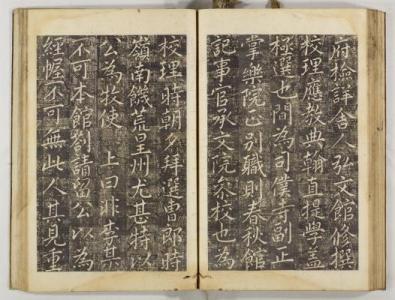 府撿詳舍人弘文館修撰
校理應教典翰直提學盖
極選也間為司僕寺副正
掌樂院正別職則春秋館
記事官承文院叅校也為
校理時朝夕拜選曹郎時
嶺南饑荒星州尤甚特以
公為牧使 上曰非李某
不可本館劄請留公以為
經幄不可無此人其見重